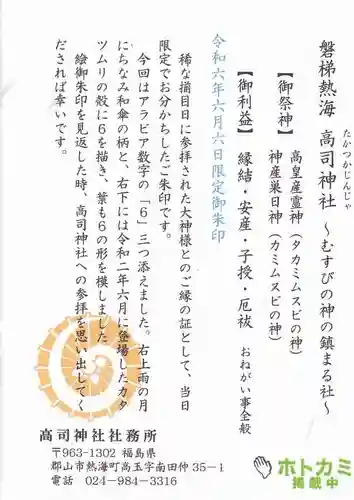 磐梯熱海 高司神社 ～むすびの神の鎮まる社～
たかつかじんじゃ
【御祭神】 高皇産霊神（タカミムスビの神）
神産巣日神（カミムスビの神）
【御利益】 縁結・安産・子授・厄祓 おねがい事全般
令和六年六月六日限定御朱印
稀な揃目日に参拝された大神様とのご縁の証として、当日
限定でお分かちしたご朱印です。
今回はアラビア数字の「６」三つ添えました。右上雨の月
にちなみ和傘の柄と、右下には令和二年六月に登場したカタ
ツムリの殻に６を描き、葉も６の形を模しました。
絵御朱印を見返した時、高司神社への参拝を思い出してく
だされば幸いです。
高司神社社務所
〒963-1302 福島県
郡山市熱海町高玉字南田仲35－1
電話 024-984-3316
ホトカミ
掲載中